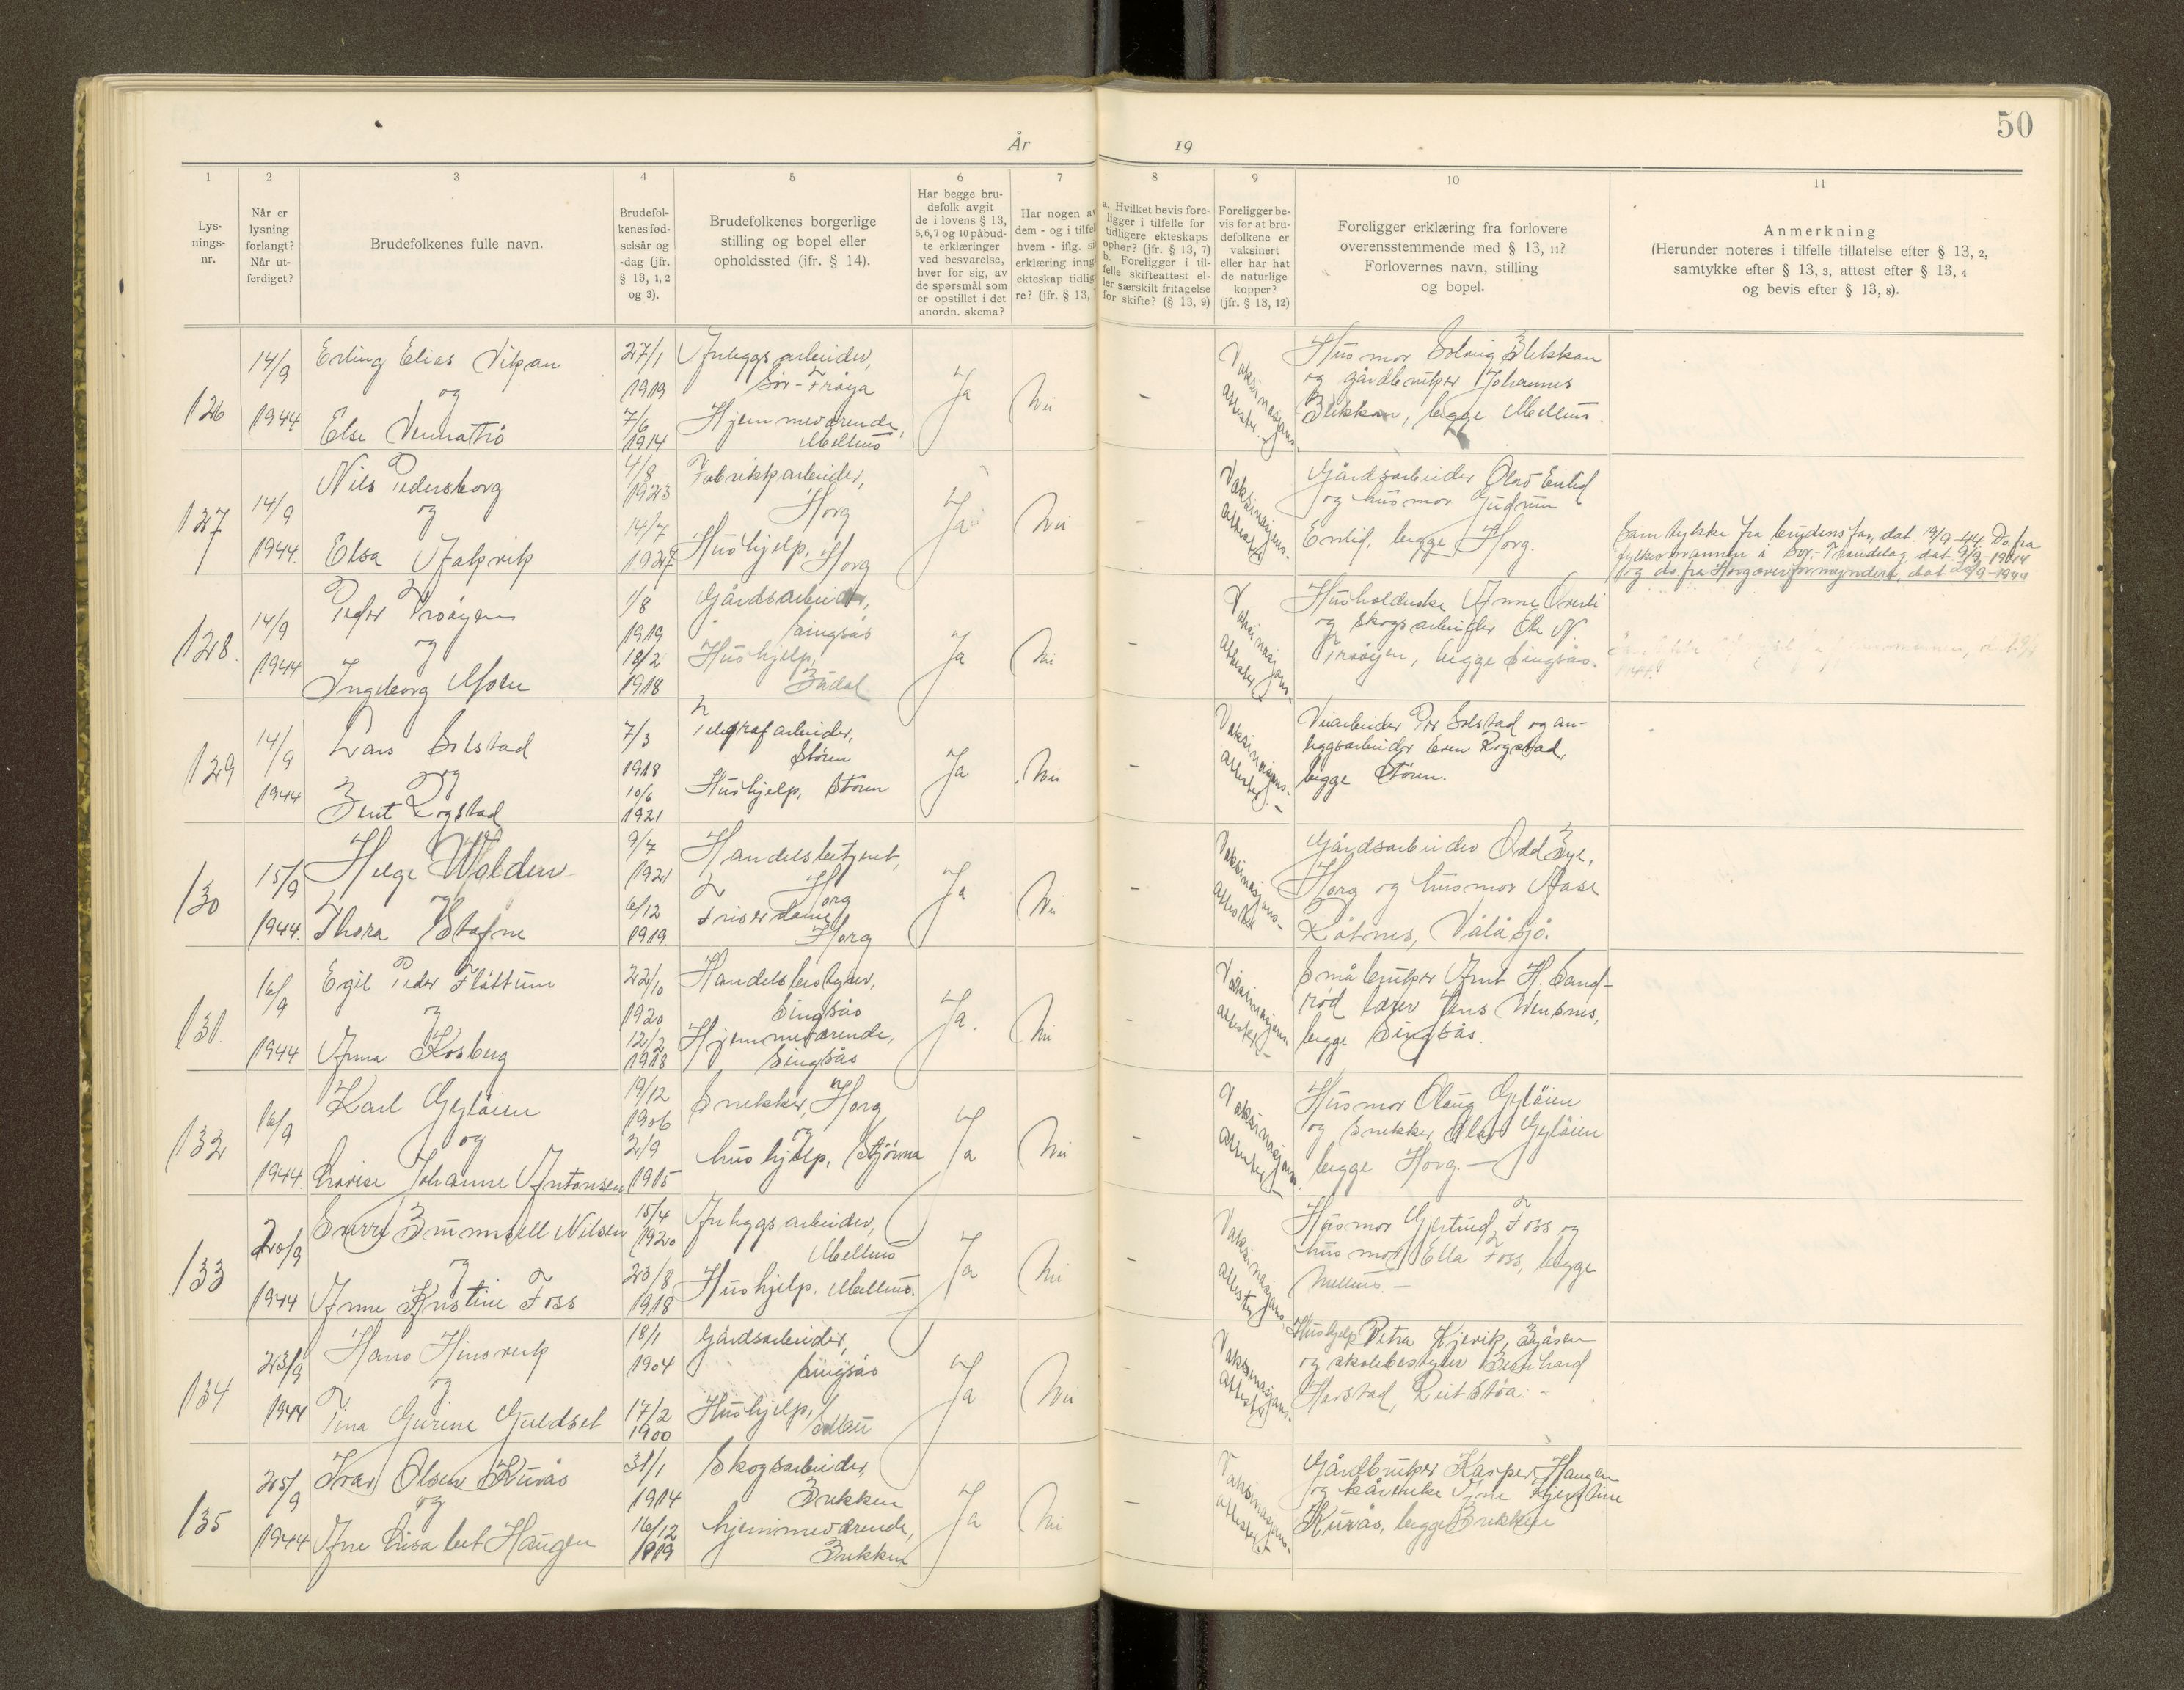 50
År 19
1 2 3 4 5 6 7 8 9 10 11
Lys-
nings-
nr.
Når er
lysning
forlangt?
Når ut-
ferdiget?
Brudefolkenes fulle navn.
Brudefol-
kenes fød-
selsår og
-dag (jfr.
§ 13, 1, 2
og 3).
Brudefolkenes borgerlige
stilling og bopel eller
opholdssted (ifr. § 14).
Har begge bru-
defolk avgit
de i lovens § 13,
5,6,7 og 10 påbud-
te erklæringer
ved besvarelse,
hver for sig, av
de spørsmål som
er opstillet i det
anordn. skema?
Har nogen av
dem - og i tilfel
hvem - iflg. si
erklæring inng
ekteskap tidlig
re? (jfr. § 13,
a. Hvilket bevis fore-
ligger i tilfelle for
tidligere ekteskaps
ophør? (jfr. § 13, 7)
b. Foreligger i til-
felle skifteattest el-
ler særskilt fritagelse
for skifte? (§ 13, 9)
Foreligger be-
vis for at bru-
defolkene er
vaksinert
eller har hat
de naturlige
kopper?
(jfr. § 13, 12)
Foreligger erklæring fra forlovere
overensstemmende med § 13, 11?
Forlovernes navn, stilling
og bopel.
Anmerkning
(Herunder noteres i tilfelle tillatelse efter § 13, 2,
samtykke efter § 13, 3, attest efter § 13, 4
og bevis efter § 13, 8).
126
14/9
1944
Erling Elias Vikan
og
Else Vennatrø
27/1
1919
7/6
1914
Anleggsarbeider,
Sör-Fröya
Hjemmeværende,
Melhus
Ja
Nei
-
Vaksinasjons-
attester.
Husmor Solveig Blekkan
og gårdbruker Johannes
Blekkan, begge Melhus.
127
14/9
1944.
Nils Pedersborg
og
Elsa
4/8
1923
14/7
1927
Fabrikkarbeider,
Horg
Hushjelp, Horg
Ja
Nei
-
Vaksinasjons-
attester
Gårdsarbeider Olav Enlid
og husmor Gudrun
Enlid, begge Horg.
Samtykke fra brudens far, dat. 19/9-44. Do. fra
fylkesmannen i Sör-Tröndelag, dat. 9/9-1944
og do. fra Horg overformynderi, dat. 20/9-1944
128
14/9
1944
Peder Trööyen
og
Ingeborg Moen
1/8
1919
18/2
1918
Gårdsarbeider,
Singsås
Hushjelp,
Budal
Ja
Nei
-
Vaksinasjons-
attester
Husholderske Anne
og skogsarbeider Ole N.
Trööyen, begge Singsås.
129
14/9
1944
Lars Solstad
og
Berit Rogstad
7/3
1918
10/6
1921
Telegrafarbeider,
Stören
Hushjelp, Stören
Ja
Nei
-
Vaksinasjons-
attester.
Veiarbeider Per Solstad og an-
leggsarbeider Even Rogstad,
begge Stören.
130
15/9
1944.
Helge Wolden
og
Thora Stafne
9/7
1921
6/12
1919.
Handelsbetjent,
Horg
Friserdame
Horg
Ja
Nei
-
Vaksinasjons-
attester
Gårdsarbeider Odd Bye,
Horg og husmor Aase
Råtnes, Vålåsjö.
131.
16/9
1944
Egil Peder Flöttum
og
Anna Kosberg
22/10
1920
12/2
1918
Handelsbestyrer,
Singsås
Hjemmeværende,
Singsås
Ja.
Nei
-
Vaksinasjons-
attester
Småbruker Arnt H. Sand-
röd lærer Jens Wensnes,
begge Singsås.
132
16/9
1944.
Karl Gylöien
og
Lovise Johanne Antonsen
19/12
1906
2/9
1915
Snekker, Horg
og
hushjelp, Stjörna
Ja
Nei
-
Vaksinasjons-
attester.
Husmor Olaug Gylöien
og snekker, Olav Gylöien
begge Horg.
133
20/9
1944
Sverre Brunsell Nilsen
og
Anne Kristine Foss
15/4
1920
23/8
1918
Anleggsarbeider,
Melhus
Hushjelp, Melhus.
Ja
Nei
-
Vaksinasjons-
attester
Husmor Gjertrud Foss og
husmor Ella Foss, begge
Melhus.
134
23/9
1944
Hans Hinsverk
og
Tina Gurine Guldset
18/1
1904
17/2
1900
Gårdsarbeider,
Singsås
Hushjelp,
Selbu
Ja
Nei
-
Vaksinasjons-
attester
Hushjelp Petra Kjervik, Bjåsen
og skolebestyrer Bernhard
Herstad, Reitstöa.
135
25/9
1944
Ivar Olsen Kurås
og
Ane Lisabet Haugen
31/1
1914
16/12
1919
Skogsarbeider,
Brekken
hjemmeværende,
Brekken
Ja
Nei
-
Vaksinasjons-
attester
Gårdbruker Kasper Haugen
og kårenke Ane Kjerstine
Kurås, begge Brekken